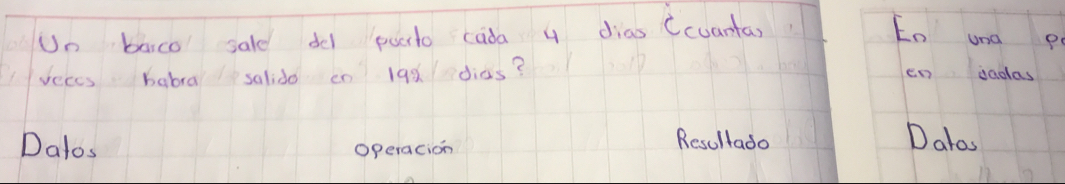 Un barco sale del puerto cada 4 dias ¿cuantas
veces habra salido en 192 dias?
Datos operación Resultado
En una
en
Datos